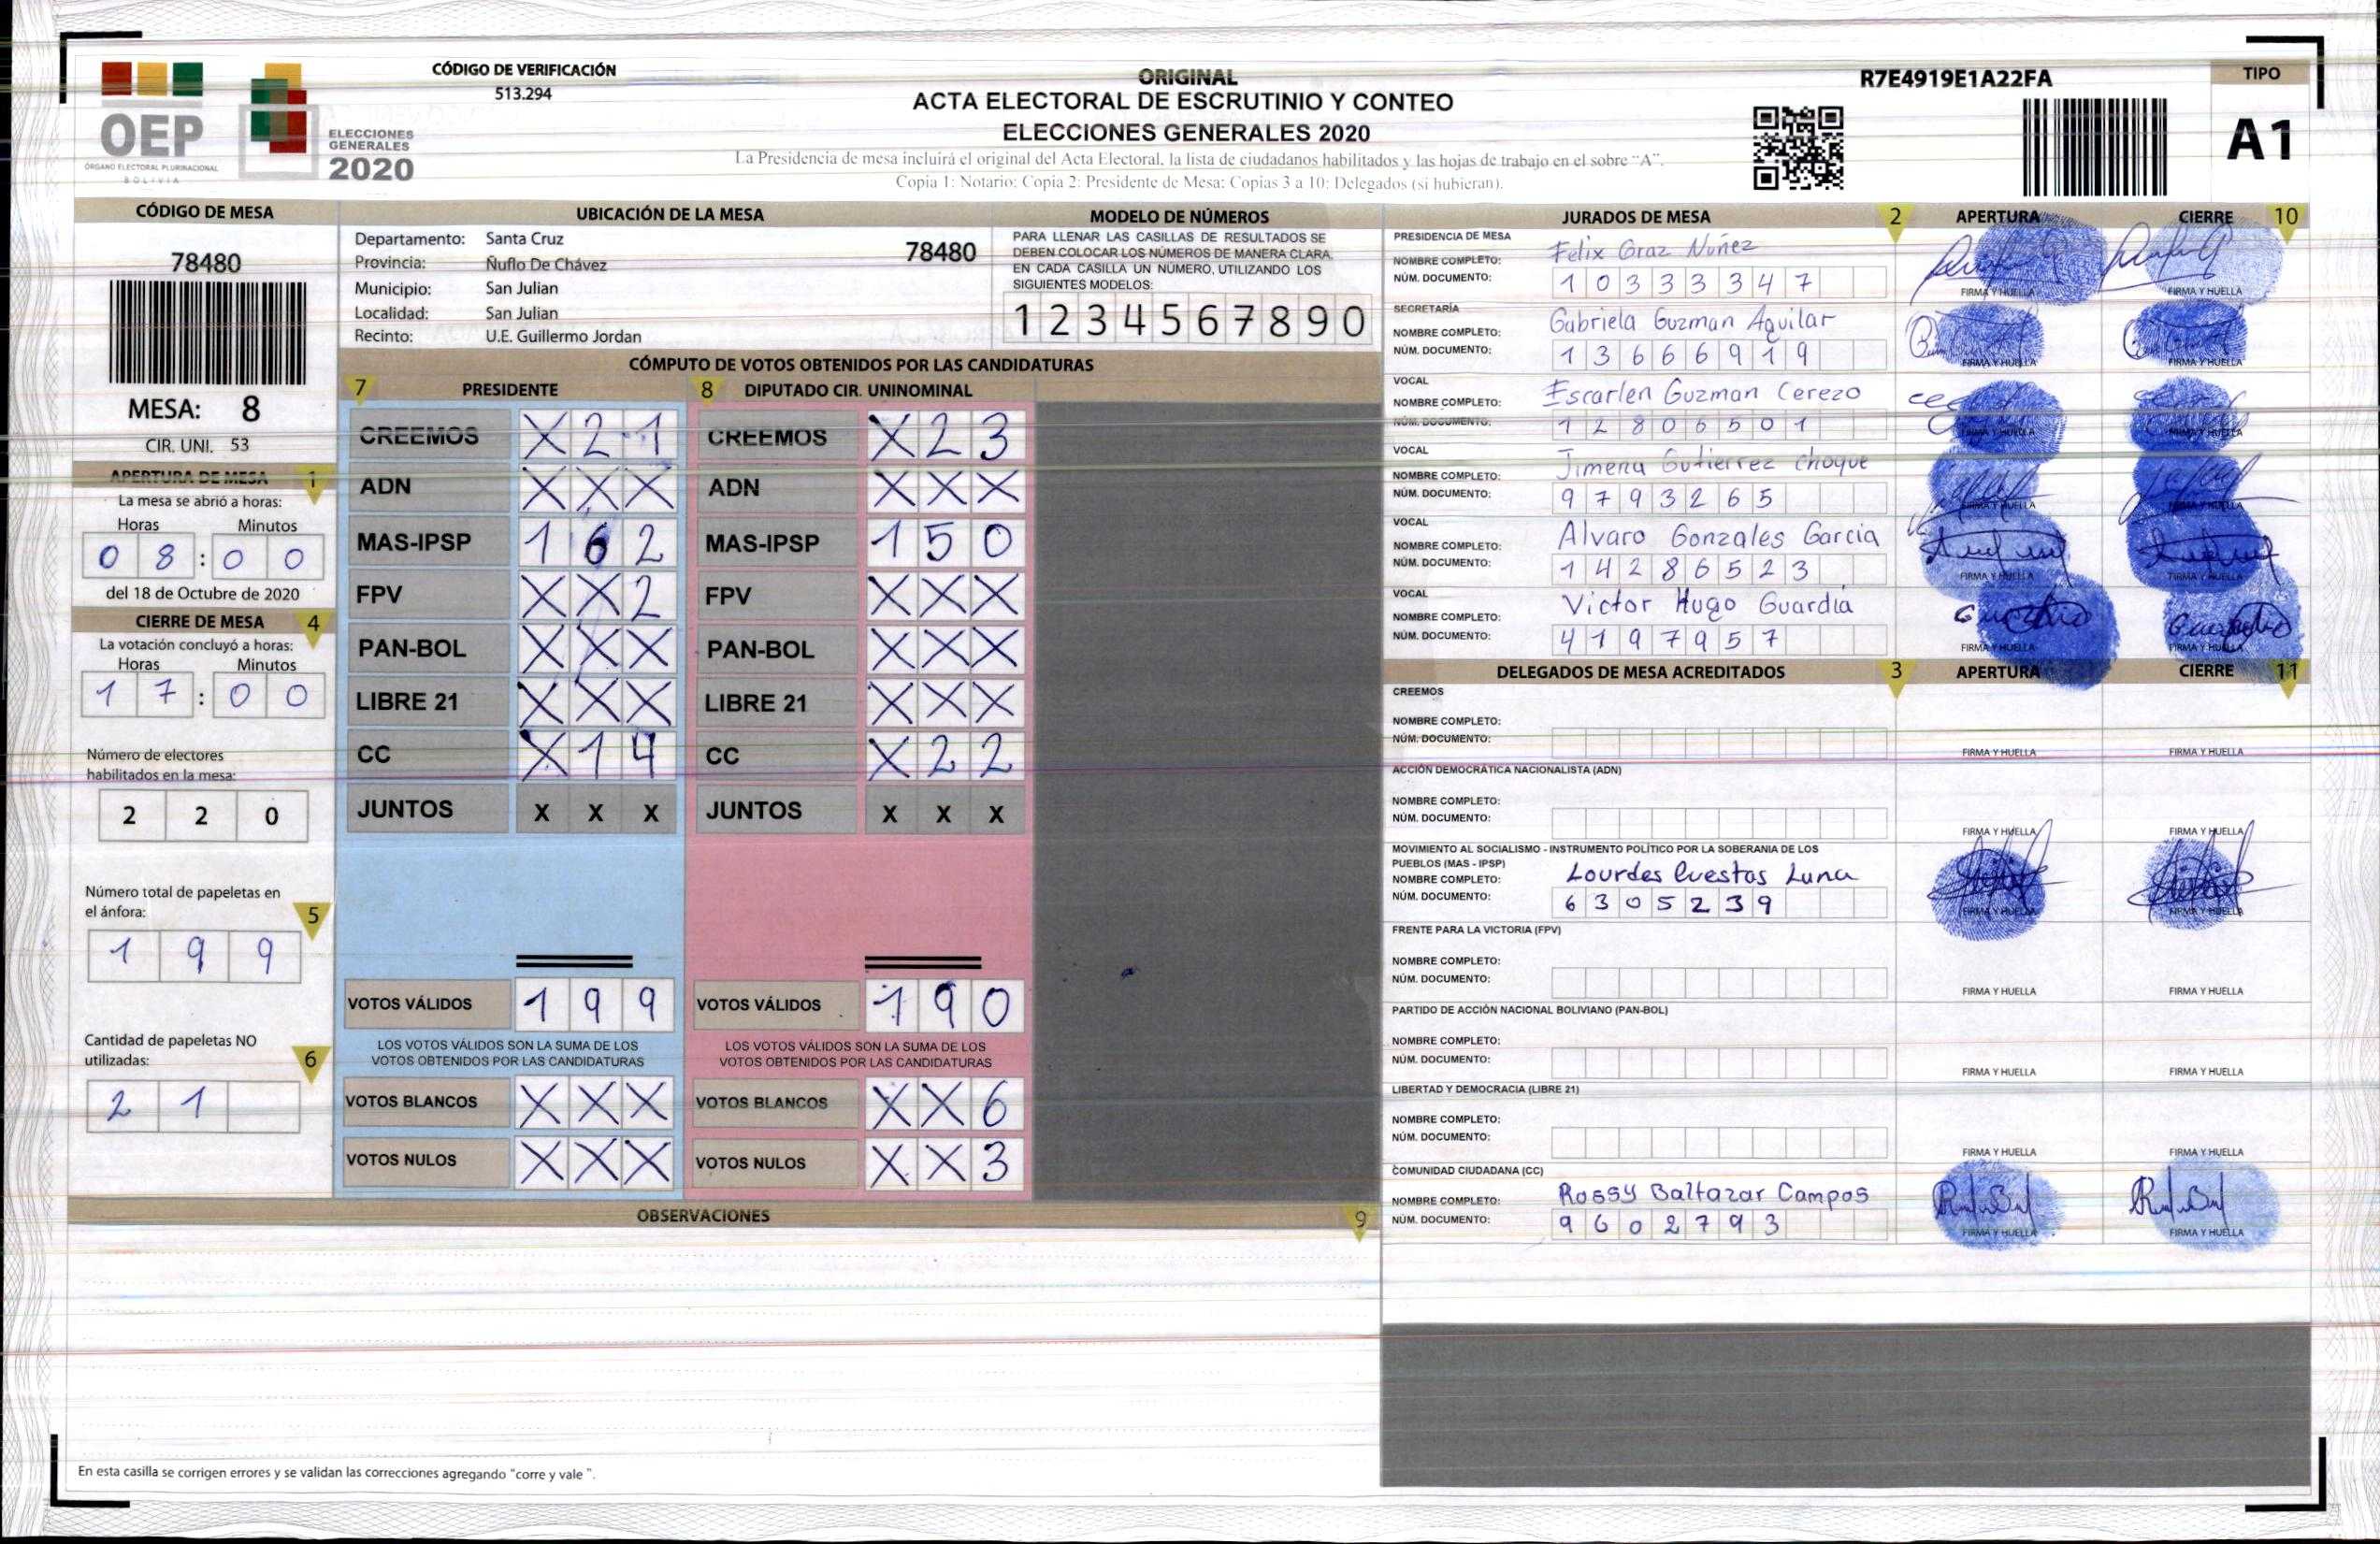 CÓDIGO DE VERIFICACIÓN
513.294
OEP
ÓRGANO ELECTORAL PLURINACIONAL
BOLIVIA
ELECCIONES
GENERALES
2020
ORIGINAL
ACTA ELECTORAL DE ESCRUTINIO Y CONTEO
ELECCIONES GENERALES 2020
La Presidencia de mesa incluirá el original del Acta Electoral, la lista de ciudadanos habilitados y las hojas de trabajo en el sobre "A".
Copia 1: Notario; Copia 2: Presidente de Mesa; Copias 3 a 10: Delegados (si hubieran).
R7E4919E1A22FA
TIPO
A1
CÓDIGO DE MESA
78480
MESA: 8
CIR. UNI. 53
APERTURA DE MESA 1
La mesa se abrió a horas:
Horas Minutos
0 8 : 0 0
del 18 de Octubre de 2020
CIERRE DE MESA 4
La votación concluyó a horas:
Horas Minutos
1 7 : 0 0
Número de electores
habilitados en la mesa:
2 2 0
Número total de papeletas en
el ánfora: 5
1 9 9
Cantidad de papeletas NO
utilizadas: 6
2 1
UBICACIÓN DE LA MESA
Departamento: Santa Cruz
78480
Provincia: Ñuflo De Chávez
Municipio: San Julian
Localidad: San Julian
Recinto: U.E. Guillermo Jordan
MODELO DE NÚMEROS
PARA LLENAR LAS CASILLAS DE RESULTADOS SE
DEBEN COLOCAR LOS NÚMEROS DE MANERA CLARA.
EN CADA CASILLA UN NÚMERO, UTILIZANDO LOS
SIGUIENTES MODELOS:
1 2 3 4 5 6 7 8 9 0
CÓMPUTO DE VOTOS OBTENIDOS POR LAS CANDIDATURAS
7 PRESIDENTE 8 DIPUTADO CIR. UNINOMINAL
CREEMOS X 2 1 CREEMOS X 2 3
ADN X X X ADN X X X
MAS-IPSP 1 6 2 MAS-IPSP 1 5 0
FPV X X 2 FPV X X X
PAN-BOL X X X PAN-BOL X X X
LIBRE 21 X X X LIBRE 21 X X X
CC X 1 4 CC X 2 2
JUNTOS X X X JUNTOS X X X
VOTOS VÁLIDOS 1 9 9 VOTOS VÁLIDOS 1 9 0
LOS VOTOS VÁLIDOS SON LA SUMA DE LOS LOS VOTOS VÁLIDOS SON LA SUMA DE LOS
VOTOS OBTENIDOS POR LAS CANDIDATURAS VOTOS OBTENIDOS POR LAS CANDIDATURAS
VOTOS BLANCOS X X X VOTOS BLANCOS X X 6
VOTOS NULOS X X X VOTOS NULOS X X 3
OBSERVACIONES 9
En esta casilla se corrigen errores y se validan las correcciones agregando "corre y vale ".
JURADOS DE MESA 2 APERTURA CIERRE 10
PRESIDENCIA DE MESA
NOMBRE COMPLETO: Felix Graz Nuñez
NÚM. DOCUMENTO: 1 0 3 3 3 3 4 7
FIRMA Y HUELLA FIRMA Y HUELLA
SECRETARÍA
NOMBRE COMPLETO: Gabriela Guzman Aguilar
NÚM. DOCUMENTO: 1 3 6 6 6 9 1 9
FIRMA Y HUELLA FIRMA Y HUELLA
VOCAL
NOMBRE COMPLETO: Escarlen Guzman Cerezo
NÚM. DOCUMENTO: 1 2 8 0 6 5 0 1
FIRMA Y HUELLA FIRMA Y HUELLA
VOCAL
NOMBRE COMPLETO: Jimena Gutierrez choque
NÚM. DOCUMENTO: 9 7 9 3 2 6 5
FIRMA Y HUELLA FIRMA Y HUELLA
VOCAL
NOMBRE COMPLETO: Alvaro Gonzales Garcia
NÚM. DOCUMENTO: 1 4 2 8 6 5 2 3
FIRMA Y HUELLA FIRMA Y HUELLA
VOCAL
NOMBRE COMPLETO: Victor Hugo Guardia
NÚM. DOCUMENTO: 4 1 9 7 9 5 7
FIRMA Y HUELLA FIRMA Y HUELLA
DELEGADOS DE MESA ACREDITADOS 3 APERTURA CIERRE 11
CREEMOS
NOMBRE COMPLETO:
NÚM. DOCUMENTO:
FIRMA Y HUELLA FIRMA Y HUELLA
ACCIÓN DEMOCRÁTICA NACIONALISTA (ADN)
NOMBRE COMPLETO:
NÚM. DOCUMENTO:
FIRMA Y HUELLA FIRMA Y HUELLA
MOVIMIENTO AL SOCIALISMO - INSTRUMENTO POLÍTICO POR LA SOBERANIA DE LOS
PUEBLOS (MAS - IPSP)
NOMBRE COMPLETO: Lourdes Cuestas Luna
NÚM. DOCUMENTO: 6 3 0 5 2 3 9
FIRMA Y HUELLA FIRMA Y HUELLA
FRENTE PARA LA VICTORIA (FPV)
NOMBRE COMPLETO:
NÚM. DOCUMENTO:
FIRMA Y HUELLA FIRMA Y HUELLA
PARTIDO DE ACCIÓN NACIONAL BOLIVIANO (PAN-BOL)
NOMBRE COMPLETO:
NÚM. DOCUMENTO:
FIRMA Y HUELLA FIRMA Y HUELLA
LIBERTAD Y DEMOCRACIA (LIBRE 21)
NOMBRE COMPLETO:
NÚM. DOCUMENTO:
FIRMA Y HUELLA FIRMA Y HUELLA
COMUNIDAD CIUDADANA (CC)
NOMBRE COMPLETO: Rossy Baltazar Campos
NÚM. DOCUMENTO: 9 6 0 2 7 9 3
FIRMA Y HUELLA FIRMA Y HUELLA